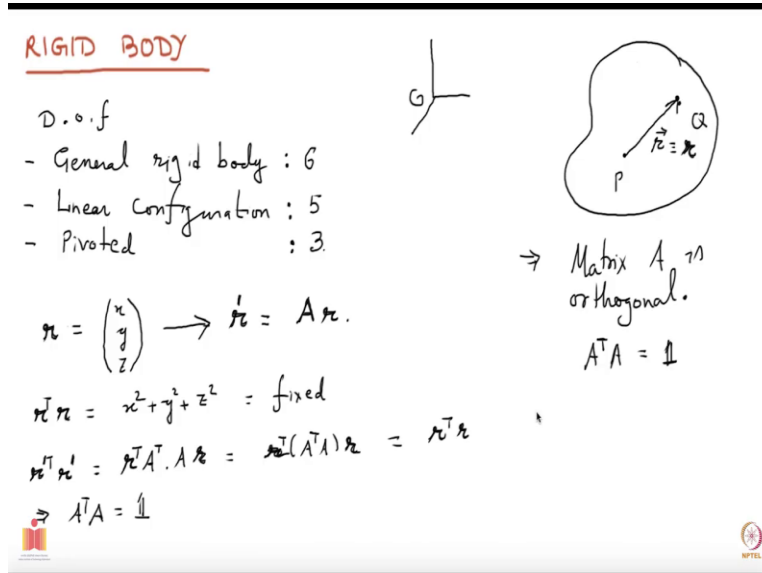 RIGID BODY
D.o.f
- General rigid body : 6
- Linear Configuration : 5
- Pivoted : 3.
r = (x y z) → r' = Ar.
rᵀr = x² + y² + z² = fixed
r'ᵀr' = rᵀAᵀ.Ar = rᵀ(AᵀA)r = rᵀr
⇒ AᵀA = 𝟙
G
Q
r⃗ = r
P
→ Matrix A is
orthogonal.
AᵀA = 𝟙
NPTEL